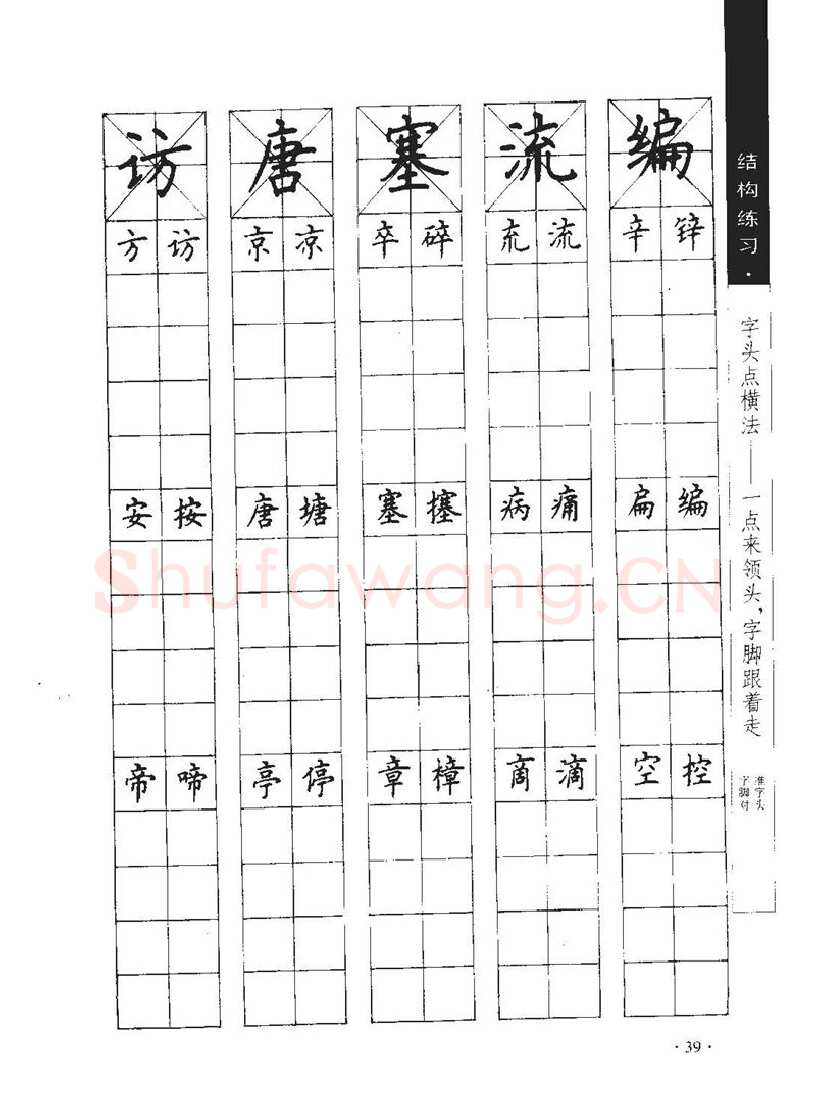 结构练习·
字头点横法——一点来领头，字脚跟着走
字脚对
准字头
访 唐 塞 流 编
方 访 京 凉 卒 碎 㐬 流 辛 锌
安 按 唐 塘 塞 搴 病 痛 扁 编
帝 啼 亭 停 章 樟 啇 滴 空 控
Shufawang.CN
·39·